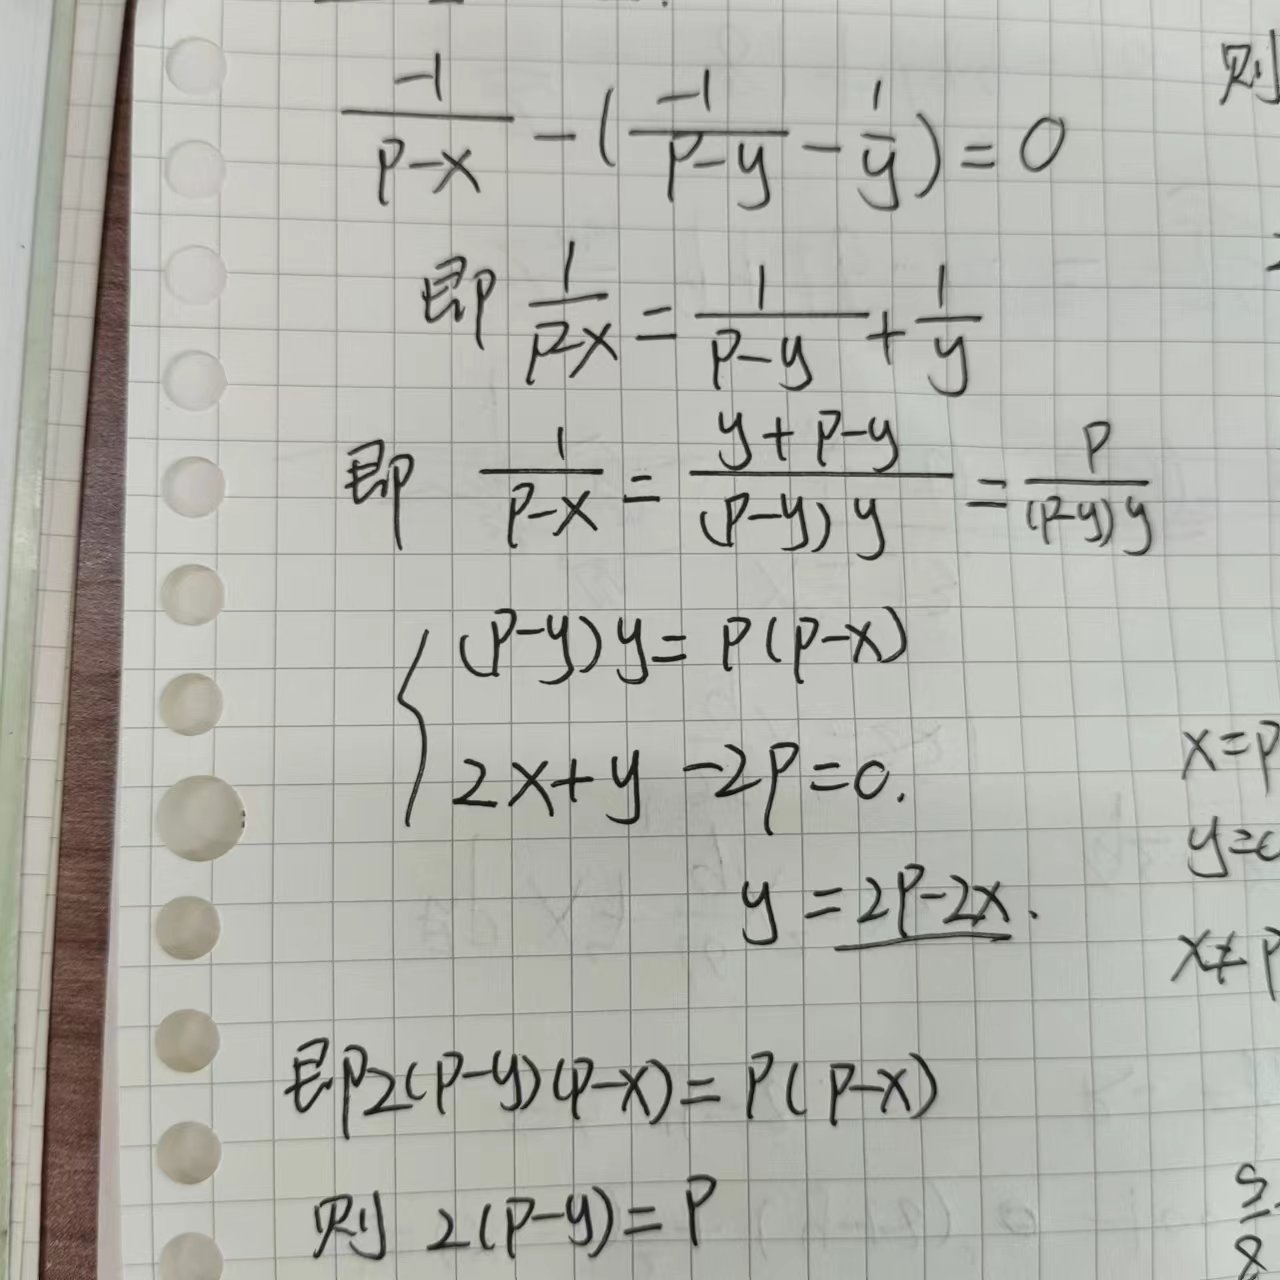 -1/(P-x) - (-1/(P-y) - 1/y) = 0
则
即 1/(P-x) = 1/(P-y) + 1/y
即 1/(P-x) = (y+P-y)/((P-y)y) = P/((P-y)y)
(P-y)y = P(P-x)
2x+y-2P=0.
x=P
y = 2P-2x.
x≠P
即2(P-y)(P-x)=P(P-x)
则 2(P-y)=P